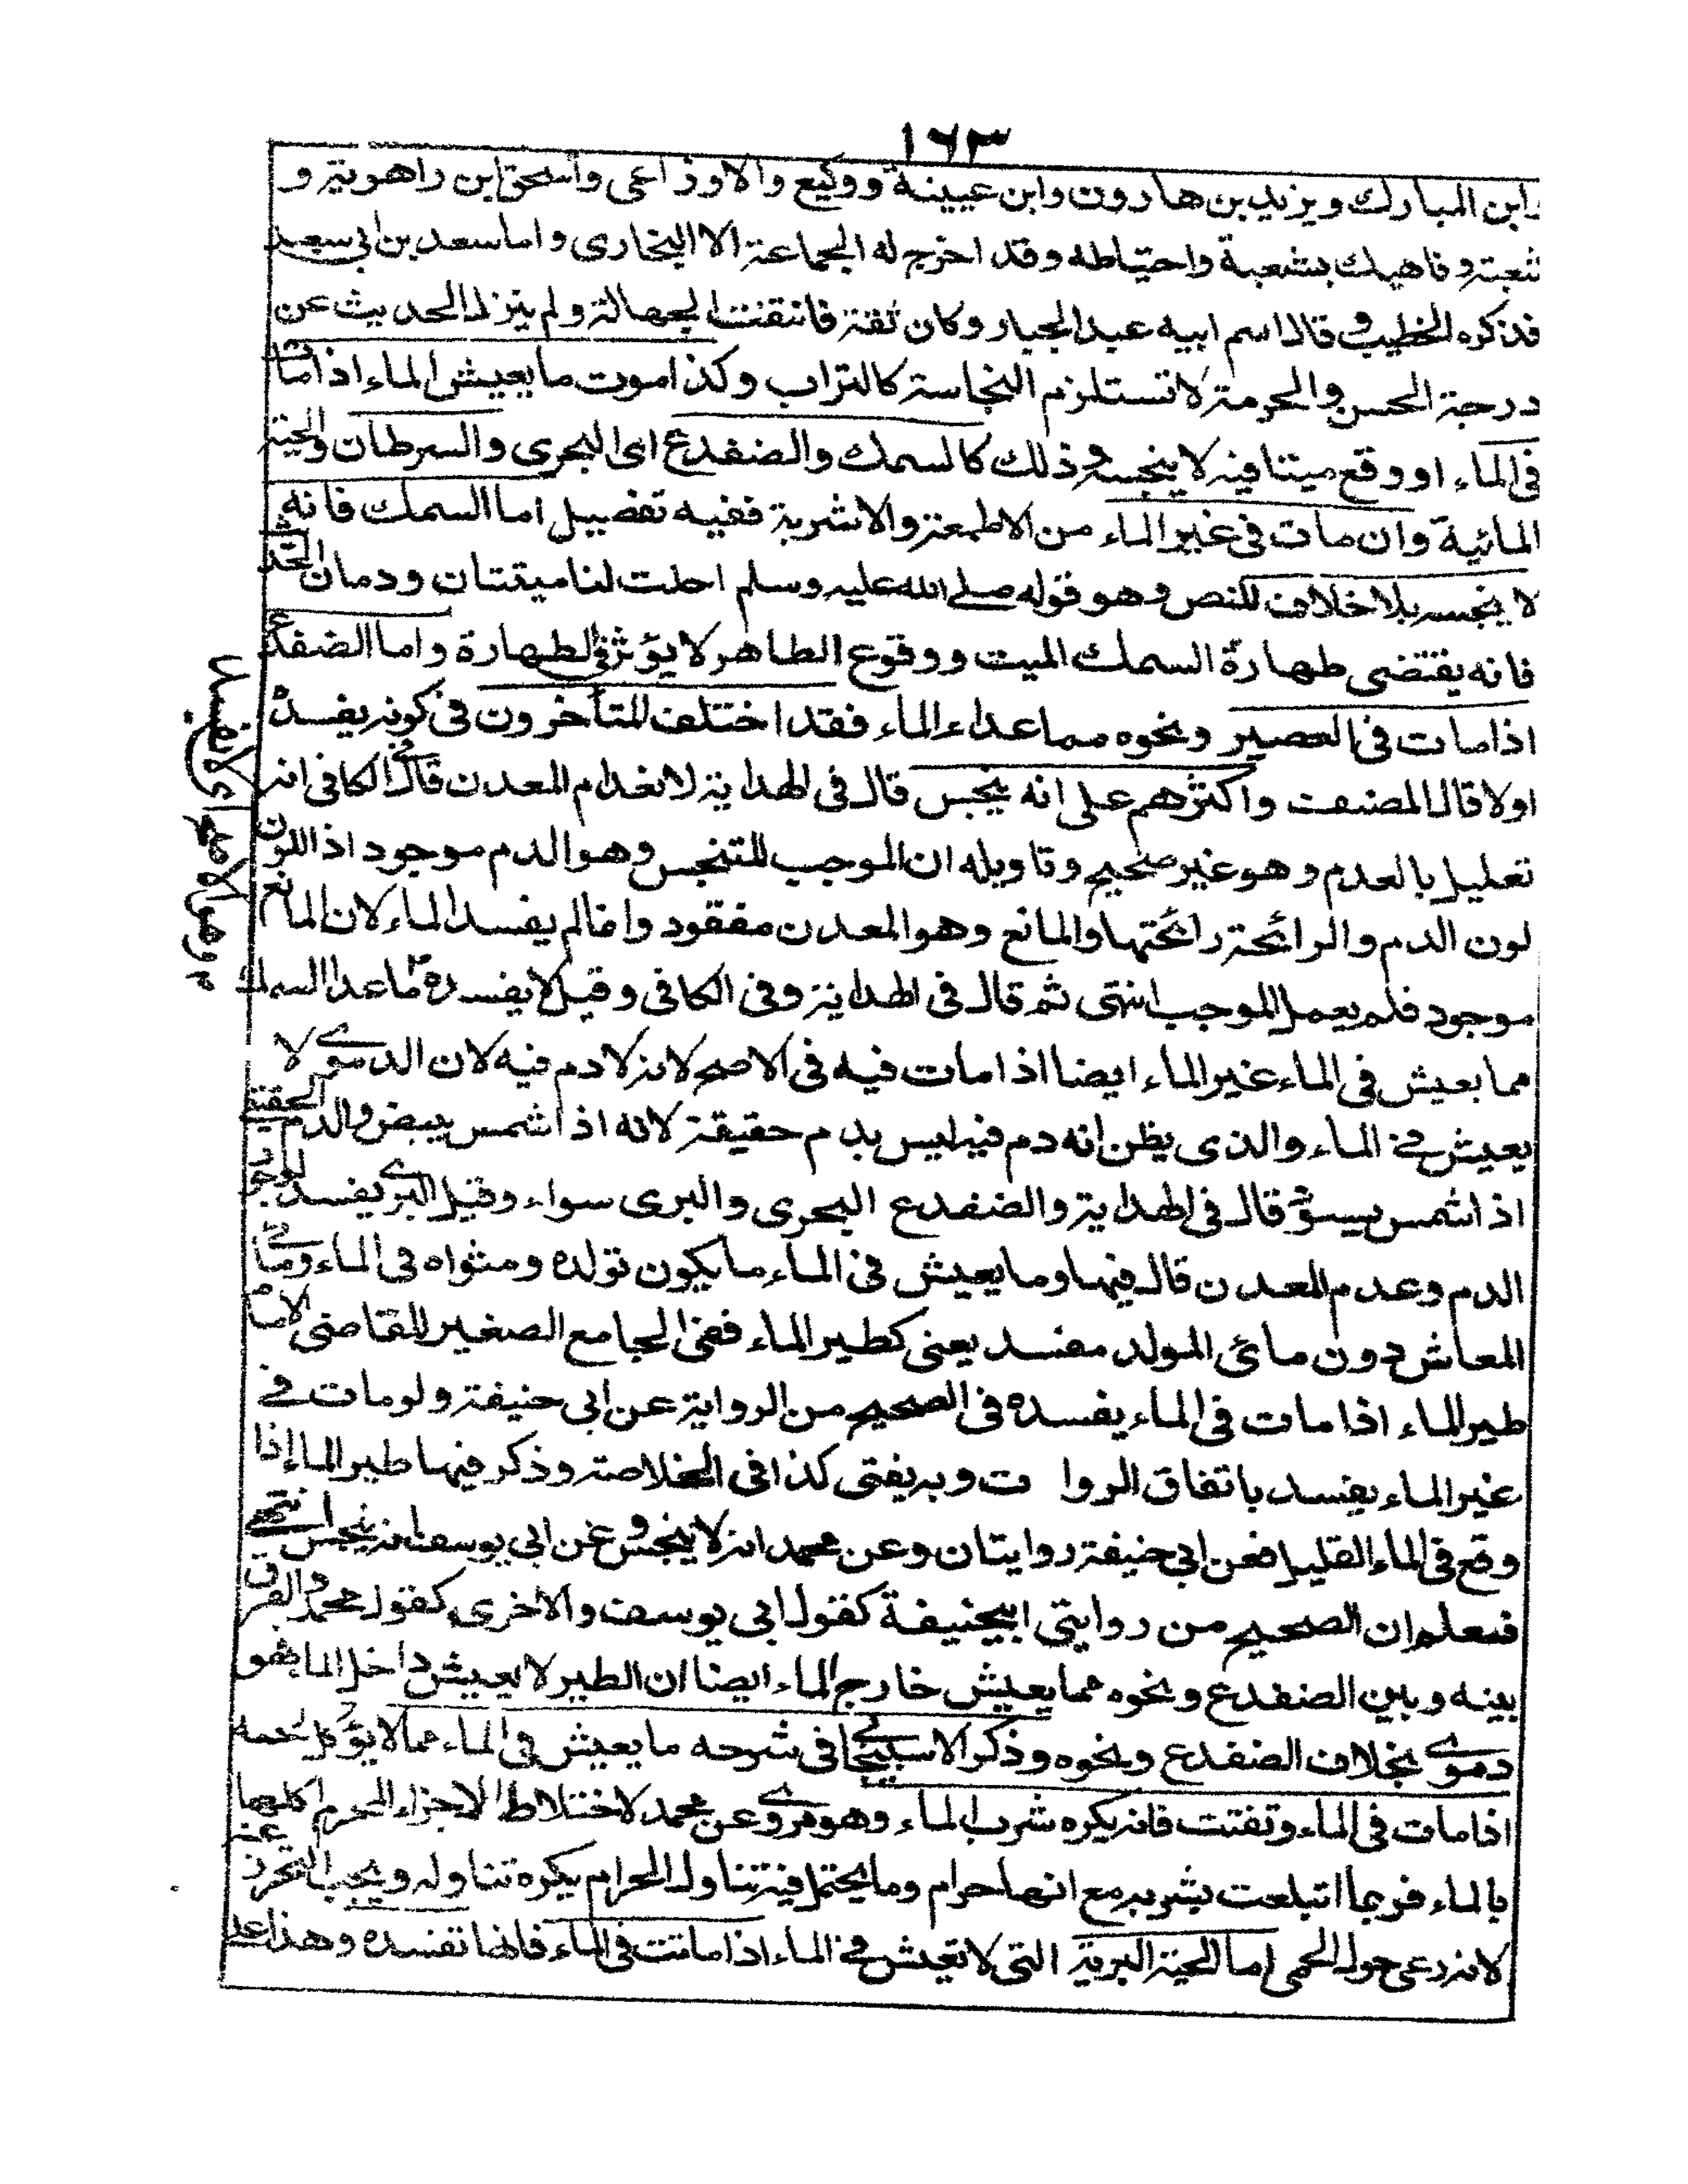 ١٦٣
وابن المبارك ويزيد بن هارون وابن عيينة ووكيع والاوزاعى واسحق ابن راهويه و
شعبة وناهيك بشعبة واحتياطه وقد اخرج له الجماعة الا البخارى واما سعد بن ابى سعيد
فذكره الخطيب وقال اسم ابيه عبد الجبار وكان ثقة فانتفت الجهالة ولم ينزل الحديث عن
درجة الحسن والحرمة لا تستلزم النجاسة كالتراب وكذا موت ما يعيش الماء اذا مات
فى الماء او وقع ميتا فيه لا ينجسه وذلك كالسمك والضفدع اى البحرى والسرطان والحية
المائية وان مات فى غير الماء من الاطعمة والاشربة ففيه تفصيل اما السمك فانه
لا ينجسه بلا خلاف للنص وهو قوله صلى الله عليه وسلم احلت لنا ميتتان ودمان الحديث
فانه يقتضى طهارة السمك الميت ووقوع الطاهر لا يؤثر فى الطهارة واما الضفدع
اذا مات فى العصير ونحوه مما عداء الماء فقد اختلف المتأخرون فى كونه يفسده
اولا قال المصنف واكثرهم على انه ينجس قال فى الهداية لانعدام المعدن قال فى الكافى انه
تعليل بالعدم وهو غير صحيح وتاويله ان الموجب للتنجس وهو الدم موجود اذ اللون
لون الدم والرائحة رائحتها والمانع وهو المعدن مفقود وانما لم يفسد الماء لان المانع
موجود فلم يعمل الموجب انتهى ثم قال فى الهداية وفى الكافى وقيل لا يفسده ٣ ما عدا السمك
مما يعيش فى الماء غير الماء ايضا اذا مات فيه فى الاصح لانه لا دم فيه لان الدموى لا
يعيش فى الماء والذى يظن انه دم فيه ليس بدم حقيقة لانه اذا شمس يبيض والدم الحقيقى
اذا شمس يسود قال فى الهداية والضفدع البحرى والبرى سواء وقيل البرى يفسد لوجود
الدم وعدم المعدن قال فيها وما يعيش فى الماء ما يكون تولده ومثواه فى الماء ومائى
المعاش دون مائى المولد مفسد يعنى كطير الماء ففى الجامع الصغير للقاضى الامام
طير الماء اذا مات فى الماء يفسده فى الصحيح من الرواية عن ابى حنيفة ولو مات فى
غير الماء يفسد باتفاق الروا ت وبه يفتى كذا فى الخلاصة وذكر فيها طير الماء اذا
وقع فى الماء القليل فعن ابى حنيفة روايتان وعن محمد انه لا ينجس وعن ابى يوسف انه ينجس انتهى
فعلم ان الصحيح من روايتى ابيحنيفة كقول ابى يوسف والاخرى كقول محمد والفرق
بينه وبين الضفدع ونحوه مما يعيش خارج الماء ايضا ان الطير لا يعيش داخل الماء فهو
دموى بخلاف الضفدع ونحوه وذكر الاسبيجابى فى شرحه ما يعيش فى الماء مما لا يؤكل لحمه
اذا مات فى الماء وتفتت فانه يكره شرب الماء وهو مروى عن محمد لاختلاط الاجزاء المحرم اكلها
بالماء فربما ابتلعت بشربه مع انها حرام وما يحتمل فيه تناول الحرام يكره تناوله ويجب التحرز عنه
لانه رعى حول الحمى اما الحية البرية التى لا تعيش فى الماء اذا ماتت فى الماء فانها تفسده وهذا على